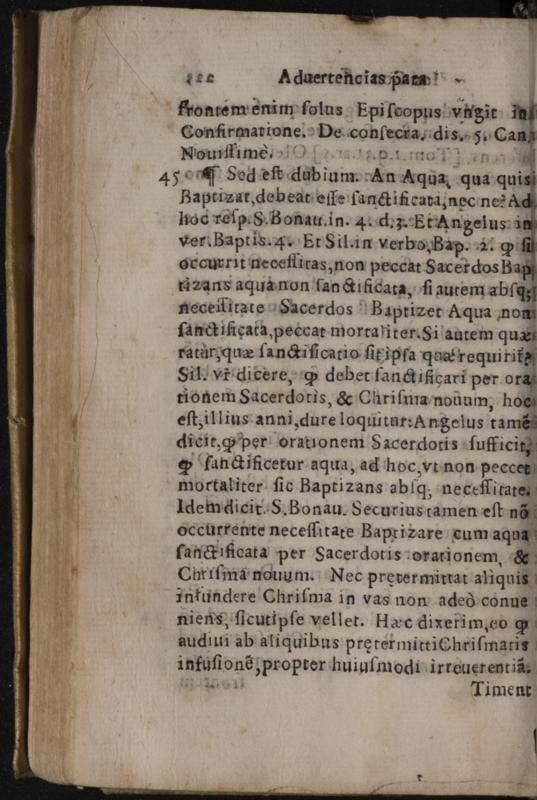 Aduertencias para
frontem enim solus Episcopus vngit in
Confirmatione. De consecra. dis. 5. Can.
Nouissimè.
45 ¶ Sed est dubium. An Aqua, qua quis
Baptizat, debeat esse sanctificata, nec ne? Ad
hoc resp. S. Bonau. in. 4. d. 3. Et Angelus in
ver. Baptis. 4. Et Sil. in verbo, Bap. 2. ꝙ si
occurrit necessitas, non peccat Sacerdos Bap
tizans aqua non sanctificata, si autem absq;
necessitate Sacerdos Baptizet Aqua non
sanctificata, peccat mortaliter. Si autem quæ
ratur, quæ sanctificatio sit ipsa quæ requirit̃?
Sil. vr̃ dicere, ꝙ debet sanctificari per ora
tionem Sacerdotis, & Chrisma nouum, hoc
est, illius anni, dure loquitur: Angelus tamẽ
dicit, ꝙ per orationem Sacerdotis sufficit,
ꝙ sanctificetur aqua, ad hoc, vt non peccet
mortaliter sic Baptizans absq; necessitate.
Idem dicit. S. Bonau. Securius tamen est nõ
occurrente necessitate Baptizare cum aqua
sanctificata per Sacerdotis orationem, &
Chrisma nouum. Nec prętermittat aliquis
infundere Chrisma in vas non adeò conue
niens, sicut ipse vellet. Hæc dixerim, eo ꝙ
audiui ab aliquibus prętermitti Chrismatis
infusionẽ, propter huiusmodi irreuerentiã.
Timent